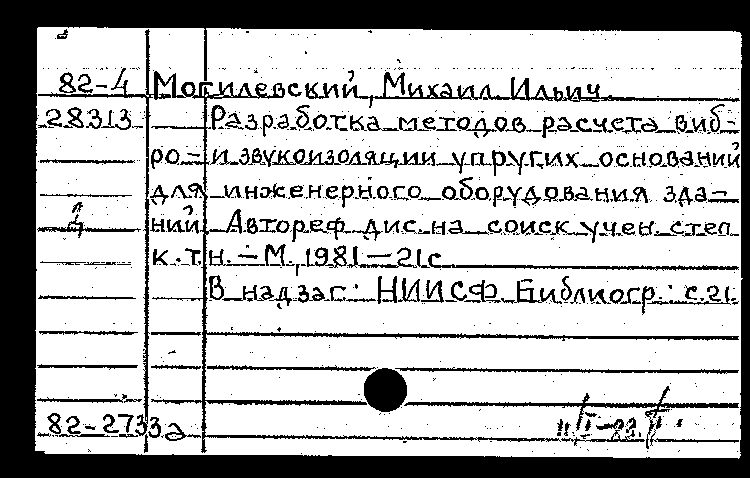 82-4 Могилевский, Михаил Ильич.
28313 Разработка методов расчета виб-
ро- и звукоизоляции упругих оснований
для инженерного оборудования зда-
ний. Автореф дис. на соиск учен. степ
к.т.н. — М., 1981 — 21с
В надзаг: НИИСФ. Библиогр.: с.21.
82-2733а